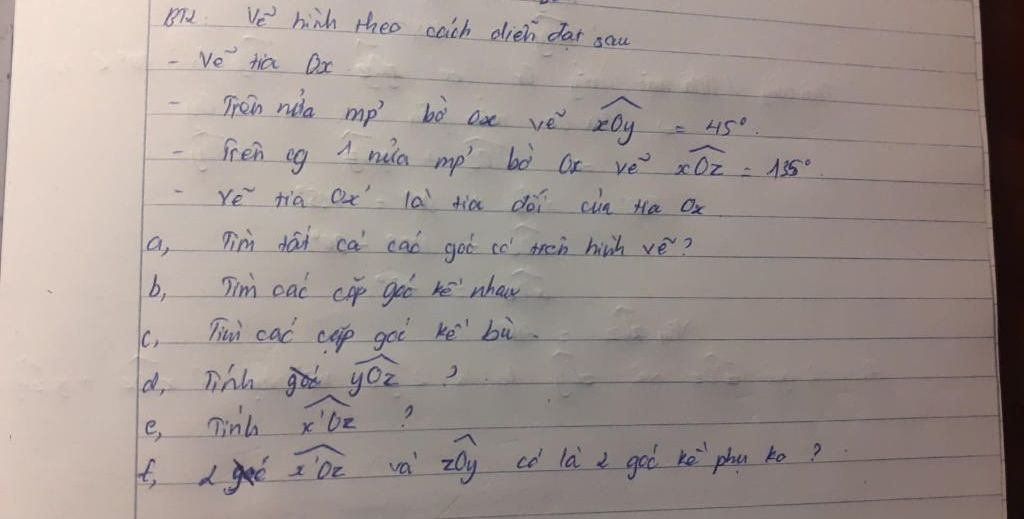 BT2. Vẽ hình theo cách diễn đạt sau
- Vẽ tia Ox.
- Trên nửa mp' bờ Ox vẽ xOy = 45°.
- Trên cg 1 nửa mp' bờ Ox vẽ xOz = 135°
- Vẽ tia Ox' là tia đối của tia Ox
a, Tìm tất cả các góc có trên hình vẽ?
b, Tìm các cặp góc kề nhau
c, Tìm các cặp góc kề bù.
d, Tính góc yOz ?
e, Tính x'Oz ?
f, 2 góc x'Oz và zOy có là 2 góc kề phụ ko ?